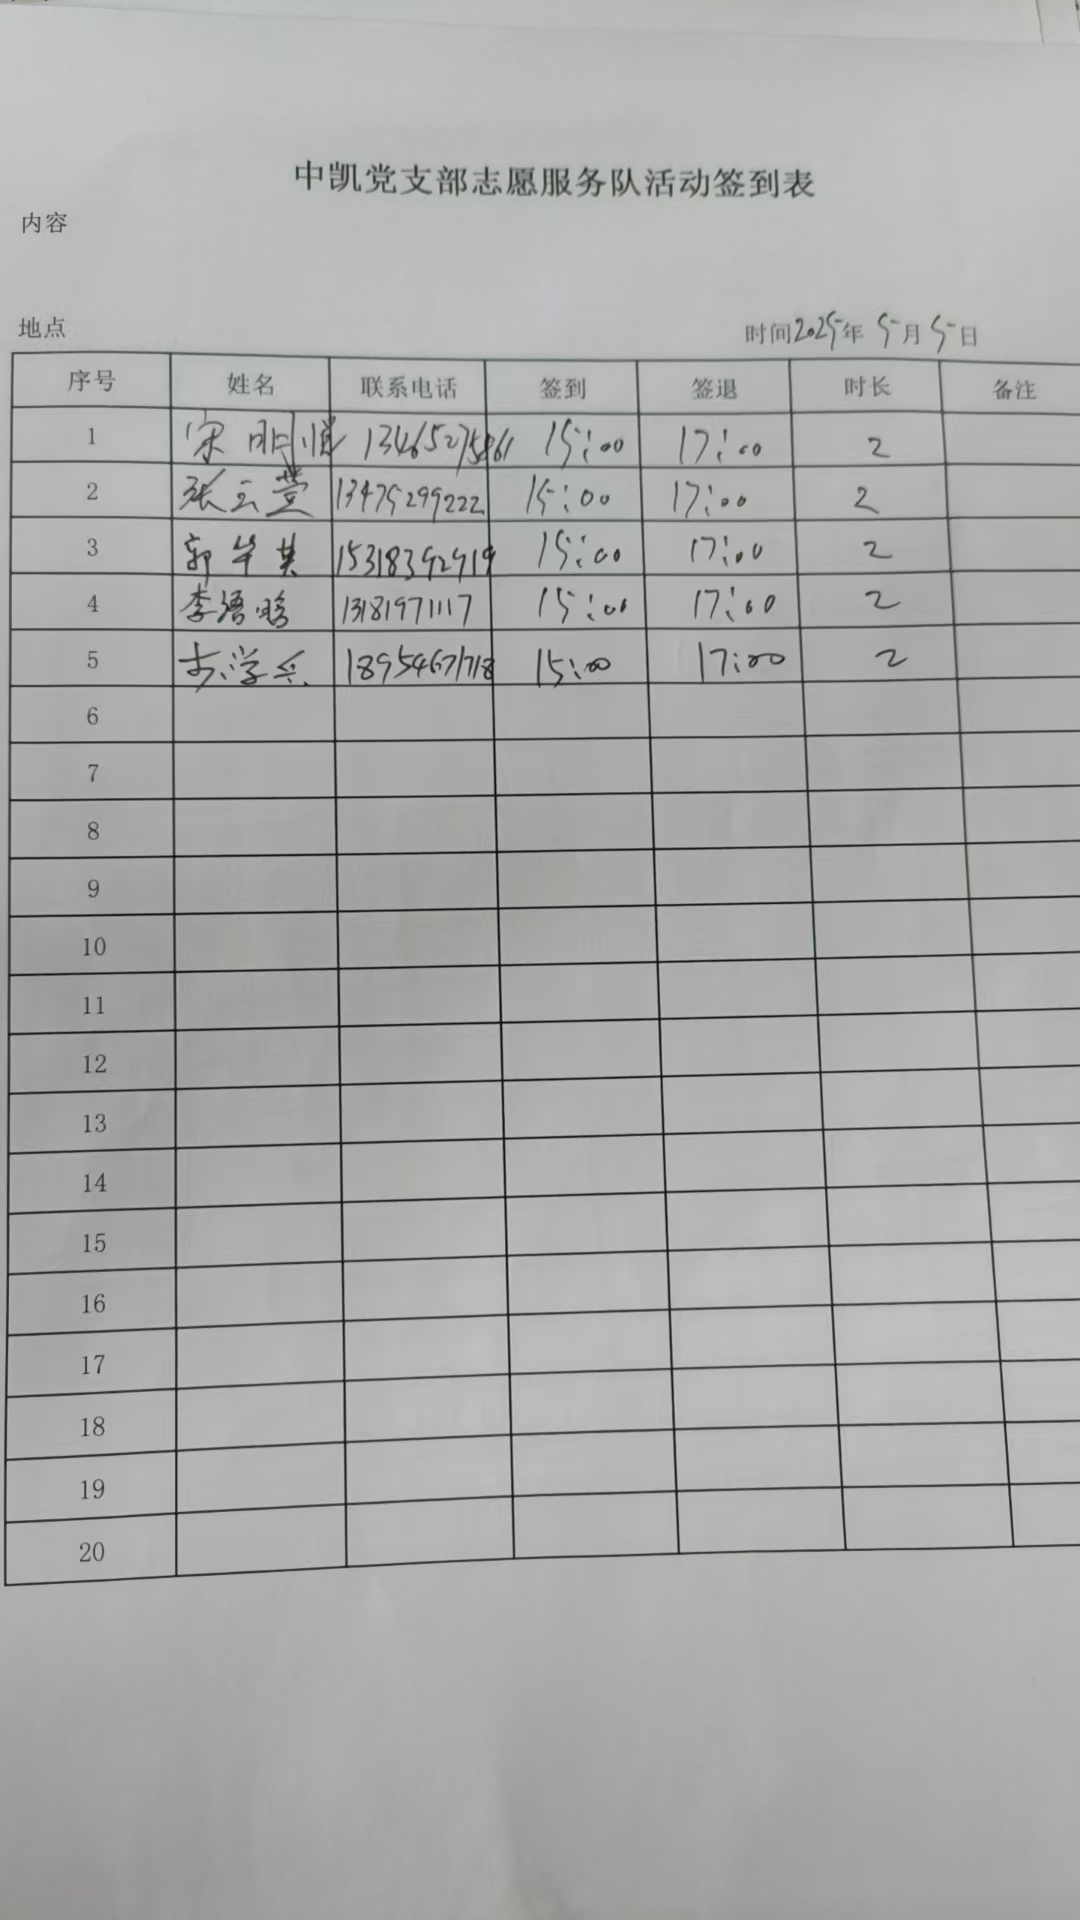 中凯党支部志愿服务队活动签到表
内容
地点
时间2025年 5月5日
序号 姓名 联系电话 签到 签退 时长 备注
1 宋明 13465275861 15:00 17:00 2
2 张云萱 13475299222 15:00 17:00 2
3 郭华其 15318392919 15:00 17:00 2
4 李浯 13181971117 15:00 17:00 2
5 学兵 18954671718 15:00 17:00 2
6
7
8
9
10
11
12
13
14
15
16
17
18
19
20